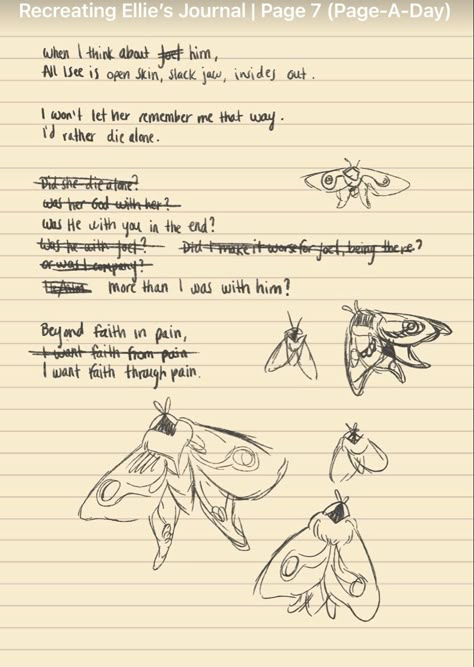 Recreating Ellie's Journal | Page 7 (Page-A-Day)
when I think about Joel him,
All I see is open skin, slack jaw, insides out.
I won't let her remember me that way.
I'd rather die alone.
Did she die alone?
Was her God with her?
Was He with you in the end?
Was he with Joel? Did I make it worse for Joel, being there?
or was I company?
more than I was with him?
Beyond faith in pain,
I want faith from pain
I want faith through pain.